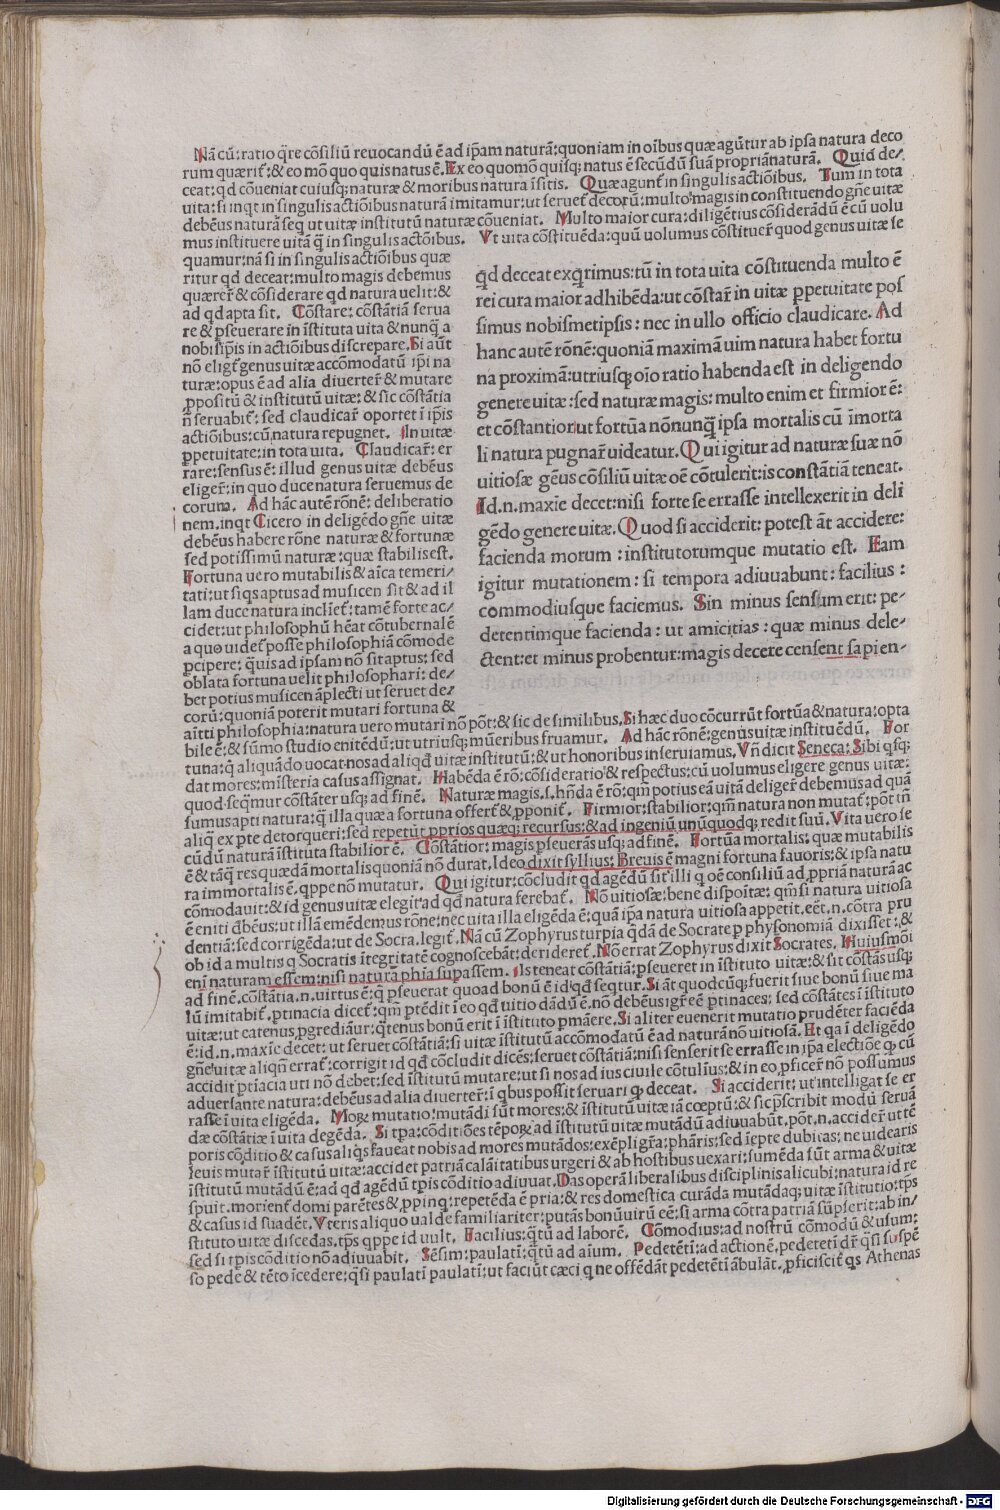 Nã cũ: ratio q̃re cõsiliũ reuocandũ ẽ ad ip̃am naturã: quoniam in oĩbus quæ agũtur ab ipsa natura deco
rum quærit̃: & eo mõ quo quis natus ẽ. Ex eo quomõ quisq; natus ẽ secũdũ suã propriã naturã. Quid de⸗
ceat: qd cõueniat cuiusq; naturæ & moribus natura ĩsitis. Quæ agunt̃ in singulis actiõibus. Tum in tota
uita: si inqt in singulis actiõibus naturã imitamur: ut seruet̃ decorũ: multo magis in constituendo gñe uitæ
debẽus naturã sequi ut uitæ institutũ naturæ cõueniat. Multo maior cura: diligẽtius cõsiderãdũ ẽ cũ uolu
mus instituere uitã q̃ in singulis actõibus. Vt uita cõstituẽda: quũ uolumus cõstituer̃ quod genus uitæ se
quamur: nã si in singulis actiõibus quæ
ritur qd deceat: multo magis debemus
quærer̃ & cõsiderare qd natura uelit: &
ad qd apta sit. Cõstare: cõstãtiã serua
re & pseuerare in ĩstituta uita & nunq̃ a
nobis ip̃is in actiõibus discrepare. Si aũt
nõ eligit̃ genus uitæ accõmodatũ ip̃i na
turæ: opus ẽ ad alia diuerter̃ & mutare
ppositũ & institutũ uitæ: & sic cõstãtia
ñ seruabit̃: sed claudicar̃ oportet ĩ ip̃is
actiõibus: cũ natura repugnet. In uitæ
ppetuitate: in tota uita. Claudicar̃: er
rare: sensus ẽ: illud genus uitæ debẽus
eliger̃: in quo duce natura seruemus de
corum. Ad hãc autẽ rõnẽ: deliberatio
nem. inqt Cicero in deligẽdo gñe uitæ
debẽus habere rõne naturæ & fortunæ
sed potissimũ naturæ: quæ stabilis est.
Fortuna uero mutabilis & aĩca temeri⸗
tati: ut si qs aptus ad musicen sit & ad il
lam duce natura inclĩet̃: tamẽ forte ac⸗
cidet: ut philosophũ hẽat cõtubernalẽ
a quo uidet̃ posse philosophiã cõmode
pcipere: q̃uis ad ipsam nõ sit aptus: sed
oblata fortuna uelit philosophari: de⸗
bet potius musicen ãplecti ut seruet de⸗
corũ: quoniã poterit mutari fortuna &
q̃d deceat exq̃rimus: tũ in tota uita cõstituenda multo ẽ
rei cura maior adhibẽda: ut cõstar̃ in uitæ ppetuitate pos
simus nobismetipsis: nec in ullo officio claudicare. Ad
hanc autẽ rõnẽ: quoniã maximã uim natura habet fortu
na proximã: utriusq; oĩo ratio habenda est in deligendo
genere uitæ: sed naturæ magis: multo enim et firmior ẽ:
et cõstantior: ut fortũa nõnunq̃ ipsa mortalis cũ ĩmorta
li natura pugnar̃ uideatur. Qui igitur ad naturæ suæ nõ
uitiosæ gẽus cõsiliũ uitæ oẽ cõtulerit: is constãtiã teneat.
Id.n.maxĩe decet: nisi forte se errasse intellexerit in deli
gẽdo genere uitæ. Quod si acciderit: potest ãt accidere:
facienda morum: institutorumque mutatio est. Eam
igitur mutationem: si tempora adiuuabunt: facilius:
commodiusque faciemus. Sin minus sensim erit: pe⸗
detentimque facienda: ut amicitias: quæ minus dele⸗
ctent: et minus probentur: magis decere censent sapien⸗
aĩtti philosophia: natura uero mutari nõ põt: & sic de similibus. Si hæc duo cõcurrũt fortũa & natura: opta
bile ẽ: & sũmo studio enitẽdũ: ut utriusq; mũeribus fruamur. Ad hãc rõnẽ: genus uitæ instituẽdũ. For
tuna: q̃ aliquãdo uocat nos ad aliqd̃ uitæ institutũ: & ut honoribus inseruiamus. Vñ dicit Seneca: Sibi qsq;
dat mores: misteria casus assignat. Habẽda ẽ rõ: cõsideratio & respectus: cũ uolumus eligere genus uitæ:
quod seq̃mur cõstãter usq; ad finẽ. Naturæ magis.s.hñda ẽ rõ: qm̃ potius eã uitã deliger̃ debemus ad quã
sumus apti natura: q̃ illa quæ a fortuna offert̃ & pponit̃. Firmior: stabilior: qm̃ natura non mutat̃: põt iñ
aliq̃ ex pte detorqueri: sed repetũt pprios quæq; recursus: & ad ingeniũ unũquodq; redit suũ. Vita uero se
cũdũ naturã ĩstituta stabilior ẽ. Cõstãtior: magis pseuerãs usq; ad finẽ. Fortũa mortalis: quæ mutabilis
ẽ & tãq̃ res quædã mortalis quoniã nõ durat. Ideo dixit syllius: Breuis ẽ magni fortuna fauoris: & ipsa natu
ra immortalis ẽ. qppe nõ mutatur. Qui igitur: cõcludit qd agẽdũ sit illi q oẽ consiliũ ad ppriã naturã ac
cõmodauit: & id genus uitæ elegit ad qd̃ natura ferebat̃. Nõ uitiosæ: bene dispoĩtæ: qm̃ si natura uitiosa
ẽ eniti d̃bẽus: ut illã emẽdemus rõne: nec uita illa eligẽda ẽ: quã ip̃a natura uitiosa appetit. eẽt.n. cõtra pru
dentiã: sed corrigẽda: ut de Socra. legit̃. Nã cũ Zophyrus turpia q̃dã de Socrate p physonomiã dixisset: &
ob id a multis q Socratis ĩtegritatẽ cognoscebãt: derideret̃. Nõ errat Zophyrus dixit Socrates. Huiusmõi
eni naturam essem: nisi naturã phĩa supassem. Is teneat cõstãtiã: pseueret in ĩstituto uitæ: & sit cõstãs usq;
ad finẽ. cõstãtia.n.uirtus ẽ: q̃ pseuerat quoad bonũ ẽ id qd̃ seqtur. Si ãt quodcũq; fuerit siue bonũ siue ma
lũ imitabit̃. ptinacia dicet̃: qm̃ ptẽdit ĩ eo qd̃ uitio dãdũ ẽ. nõ debẽus igr̃ eẽ ptinaces: sed cõstãtes ĩ ĩstituto
uitæ: ut catenus pgrediãur: q̃tenus bonũ erit ĩ ĩstituto pmãere. Si aliter euenerit mutatio prudẽter faciẽda
ẽ: id.n.maxĩe decet: ut seruet cõstãtiã: si uitæ ĩstitutũ accõmodatũ ẽ ad naturã nõ uitiosã. Et qa ĩ deligẽdo
gñe uitæ aliqñ errat̃: corrigit id qd̃ cõcludit dicẽs: seruet cõstãtiã: nisi senserit se errasse in ip̃a electiõe qp cũ
accidit ptĩacia uti nõ debet: sed ĩstitutũ mutare: ut si nos ad ius ciuile cõtulĩus: & in eo pficer̃ nõ possumus
aduersãte natura: debẽus ad alia diuerter̃: ĩ qbus possit seruari qp deceat. Si acciderit: ut intelligat se er
rasse ĩ uita eligẽda. Morꝝ mutatio: mutãdi sũt mores: & ĩstitutũ uitæ iã cœptũ: & sic pscribit modũ seruã
dæ cõstãtiæ ĩ uita degẽda. Si tpa: cõditiões tẽporꝝ ad ĩstitutũ uitæ mutãdũ adiuuabũt. põt.n. accider̃ ut tẽ
poris cõditio & casus aliqs faueat nobis ad mores mutãdos: exẽpli gr̃a: phãris: sed ĩepte dubitas: ne uidearis
leuis mutar̃ ĩstitutũ uitæ: accidet patriã calãitatibus urgeri & ab hostibus uexari: sumẽda sũt arma & uitæ
ĩstitutũ mutãdũ ẽ: ad qd̃ agẽdũ tpis cõditio adiuuat. Das operã liberalibus disciplinis alicubi: natura id re
spuit. morient̃ domi parẽtes & ppinq: repetẽda ẽ pria: & res domestica curãda mutãdaq; uitæ ĩstitutio: tp̃s
& casus id suadẽt. Vteris aliquo ualde familiariter: putãs bonũ uirũ eẽ: si arma cõtra patriã sũpserit: ab in⸗
stituto uitæ discedas. tp̃s qppe id uult. Facilius: q̃tũ ad laborẽ. Cõmodius: ad nostrũ cõmodũ & usum:
sed si tpis cõditio nõ adiuuabit. Sẽsim: paulatĩ: q̃tũ ad aĩum. Pedetẽtĩ: ad actionẽ. pedetetĩ dr̃ q̃si suspẽ
so pede & tẽto ĩcedere: q̃si paulatĩ paulatĩ: ut faciũt cæci q ne offẽdãt pedetẽtĩ ãbulãt. pficiscit̃ qs Athenas
Digitalisierung gefördert durch die Deutsche Forschungsgemeinschaft - DFG